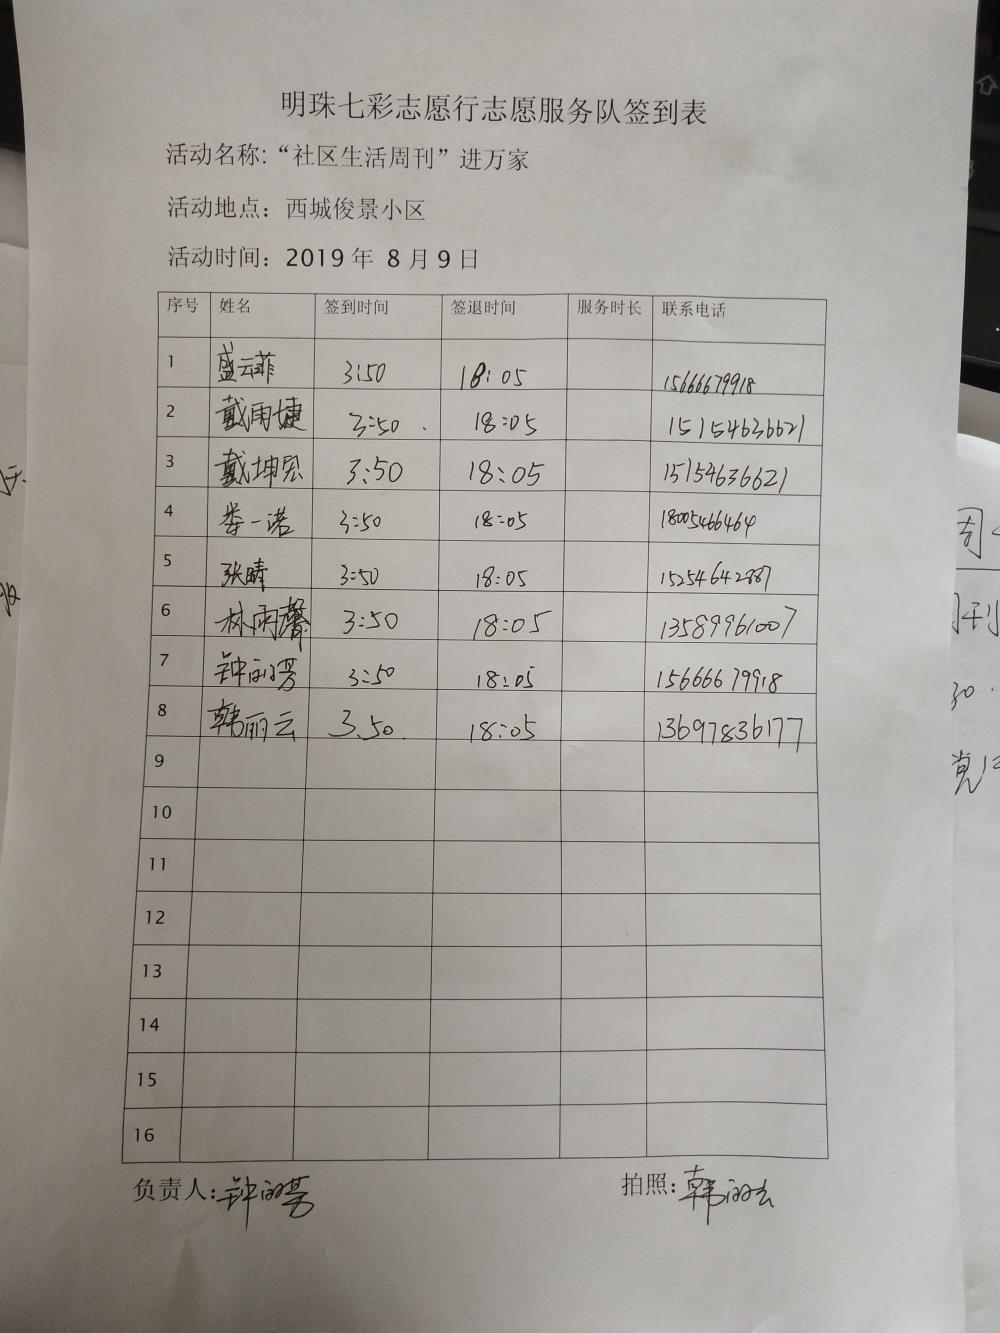 明珠七彩志愿行志愿服务队签到表
活动名称:“社区生活周刊”进万家
活动地点：西城俊景小区
活动时间：2019年 8月9日
序号 姓名 签到时间 签退时间 服务时长 联系电话
1 盛云菲 3:50 18:05 15666679918
2 戴雨婕 3:50 18:05 15154636621
3 戴坤 3:50 18:05 15154636621
4 一诺 3:50 18:05 18005466464
5 张晴 3:50 18:05 15254642887
6 林雨馨 3:50 18:05 13589961007
7 钟丽芳 3:50 18:05 15666679918
8 韩丽云 3.50 18:05 13697836177
9
10
11
12
13
14
15
16
负责人:钟丽芳 拍照:韩丽云
周
30